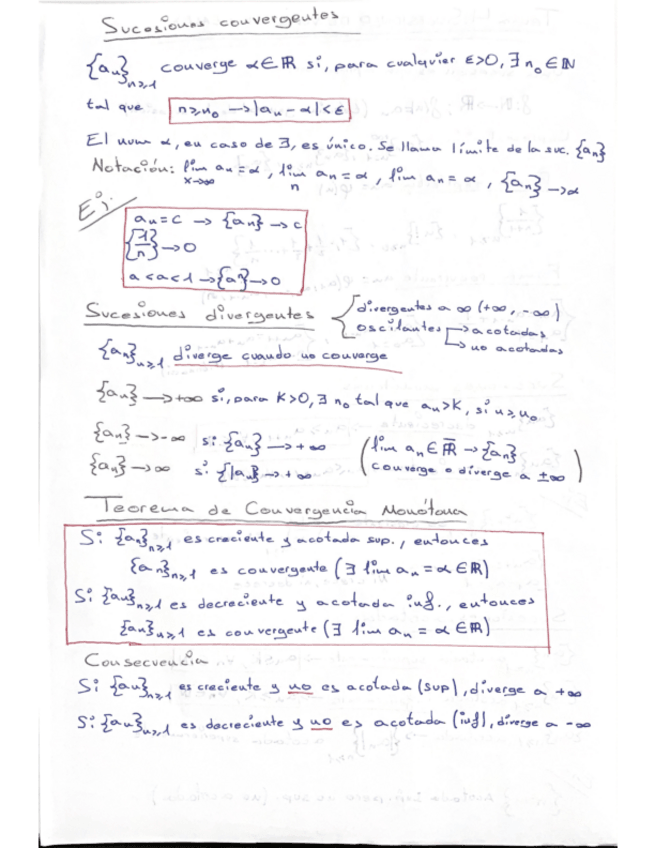 Sucesiones convergentes
{aₙ}ₙ≥₁ converge α∈ℝ si, para cualquier ε>0, ∃ n₀∈ℕ
tal que n≥n₀ → |aₙ - α| < ε
El num α, en caso de ∃, es único. Se llama límite de la suc. {aₙ}
Notación: lim aₙ = α, lim aₙ = α, lim aₙ = α, {aₙ} → α
x→∞ n
Ej:
aₙ = c → {aₙ} → c
{1/n} → 0
a<a<1 → {aⁿ} → 0
Sucesiones divergentes
divergentes a ∞ (+∞, -∞)
oscilantes → acotadas
→ no acotadas
{aₙ}ₙ≥₁ diverge cuando no converge
{aₙ} → +∞ si, para K>0, ∃ n₀ tal que aₙ>K, si n≥n₀
{aₙ} → -∞ si {aₙ} → +∞
{aₙ} → ∞ si {|aₙ|} → +∞
(lim aₙ ∈ ℝ̅ → {aₙ}
converge o diverge a ±∞)
Teorema de Convergencia Monótona
Si {aₙ}ₙ≥₁ es creciente y acotada sup., entonces
{aₙ}ₙ≥₁ es convergente (∃ lim aₙ = α ∈ ℝ)
Si {aₙ}ₙ≥₁ es decreciente y acotada inf., entonces
{aₙ}ₙ≥₁ es convergente (∃ lim aₙ = α ∈ ℝ)
Consecuencia
Si {aₙ}ₙ≥₁ es creciente y no es acotada (sup), diverge a +∞
Si {aₙ}ₙ≥₁ es decreciente y no es acotada (inf), diverge a -∞